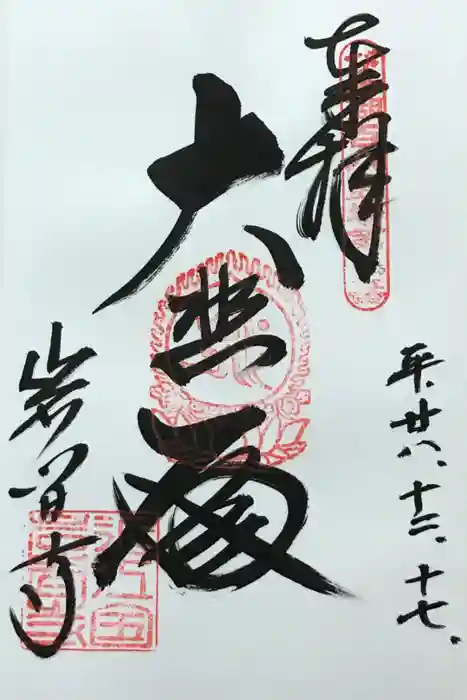 奉拝
大悲殿
岩間寺
平、廿八、十二、十七、